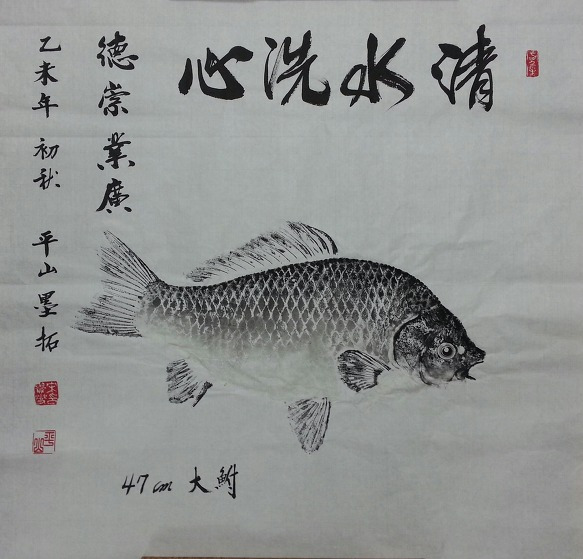 清水洗心
德崇業廣
乙未年 初秋 平山墨拓
47cm 大鮒